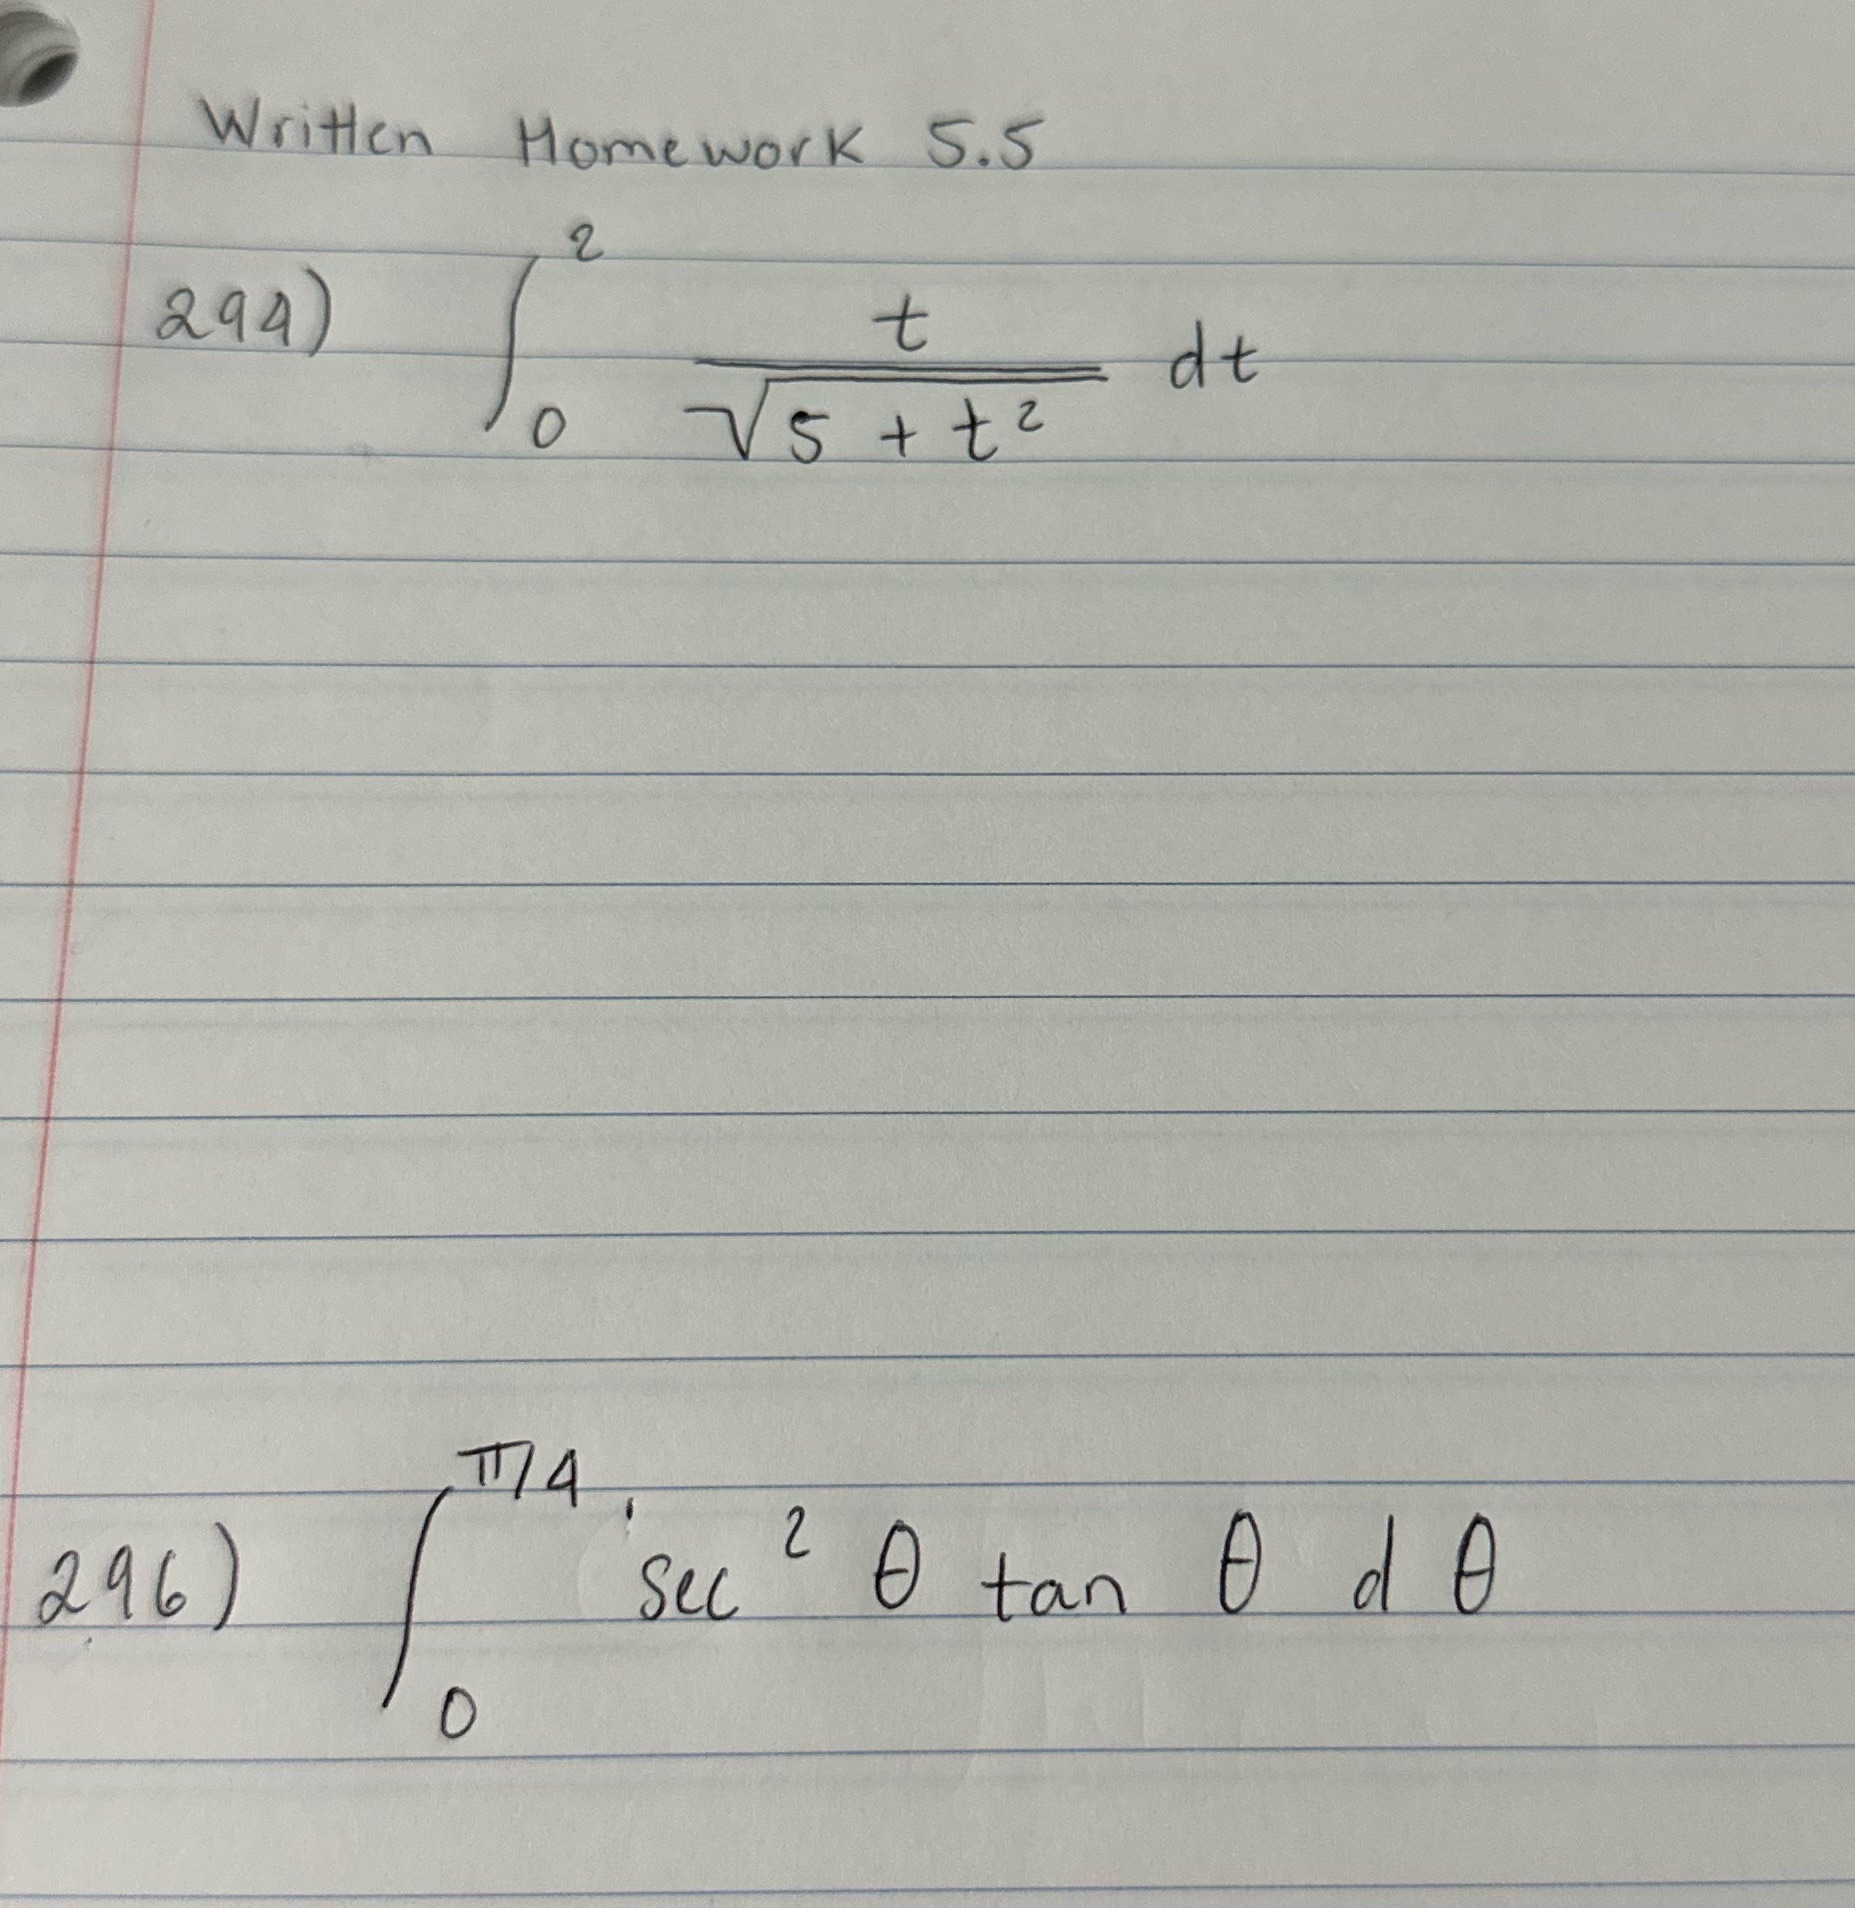 Written Homework 5.5
294) ∫₀² t / √(5 + t²) dt
296) ∫₀^(π/4) sec² θ tan θ d θ